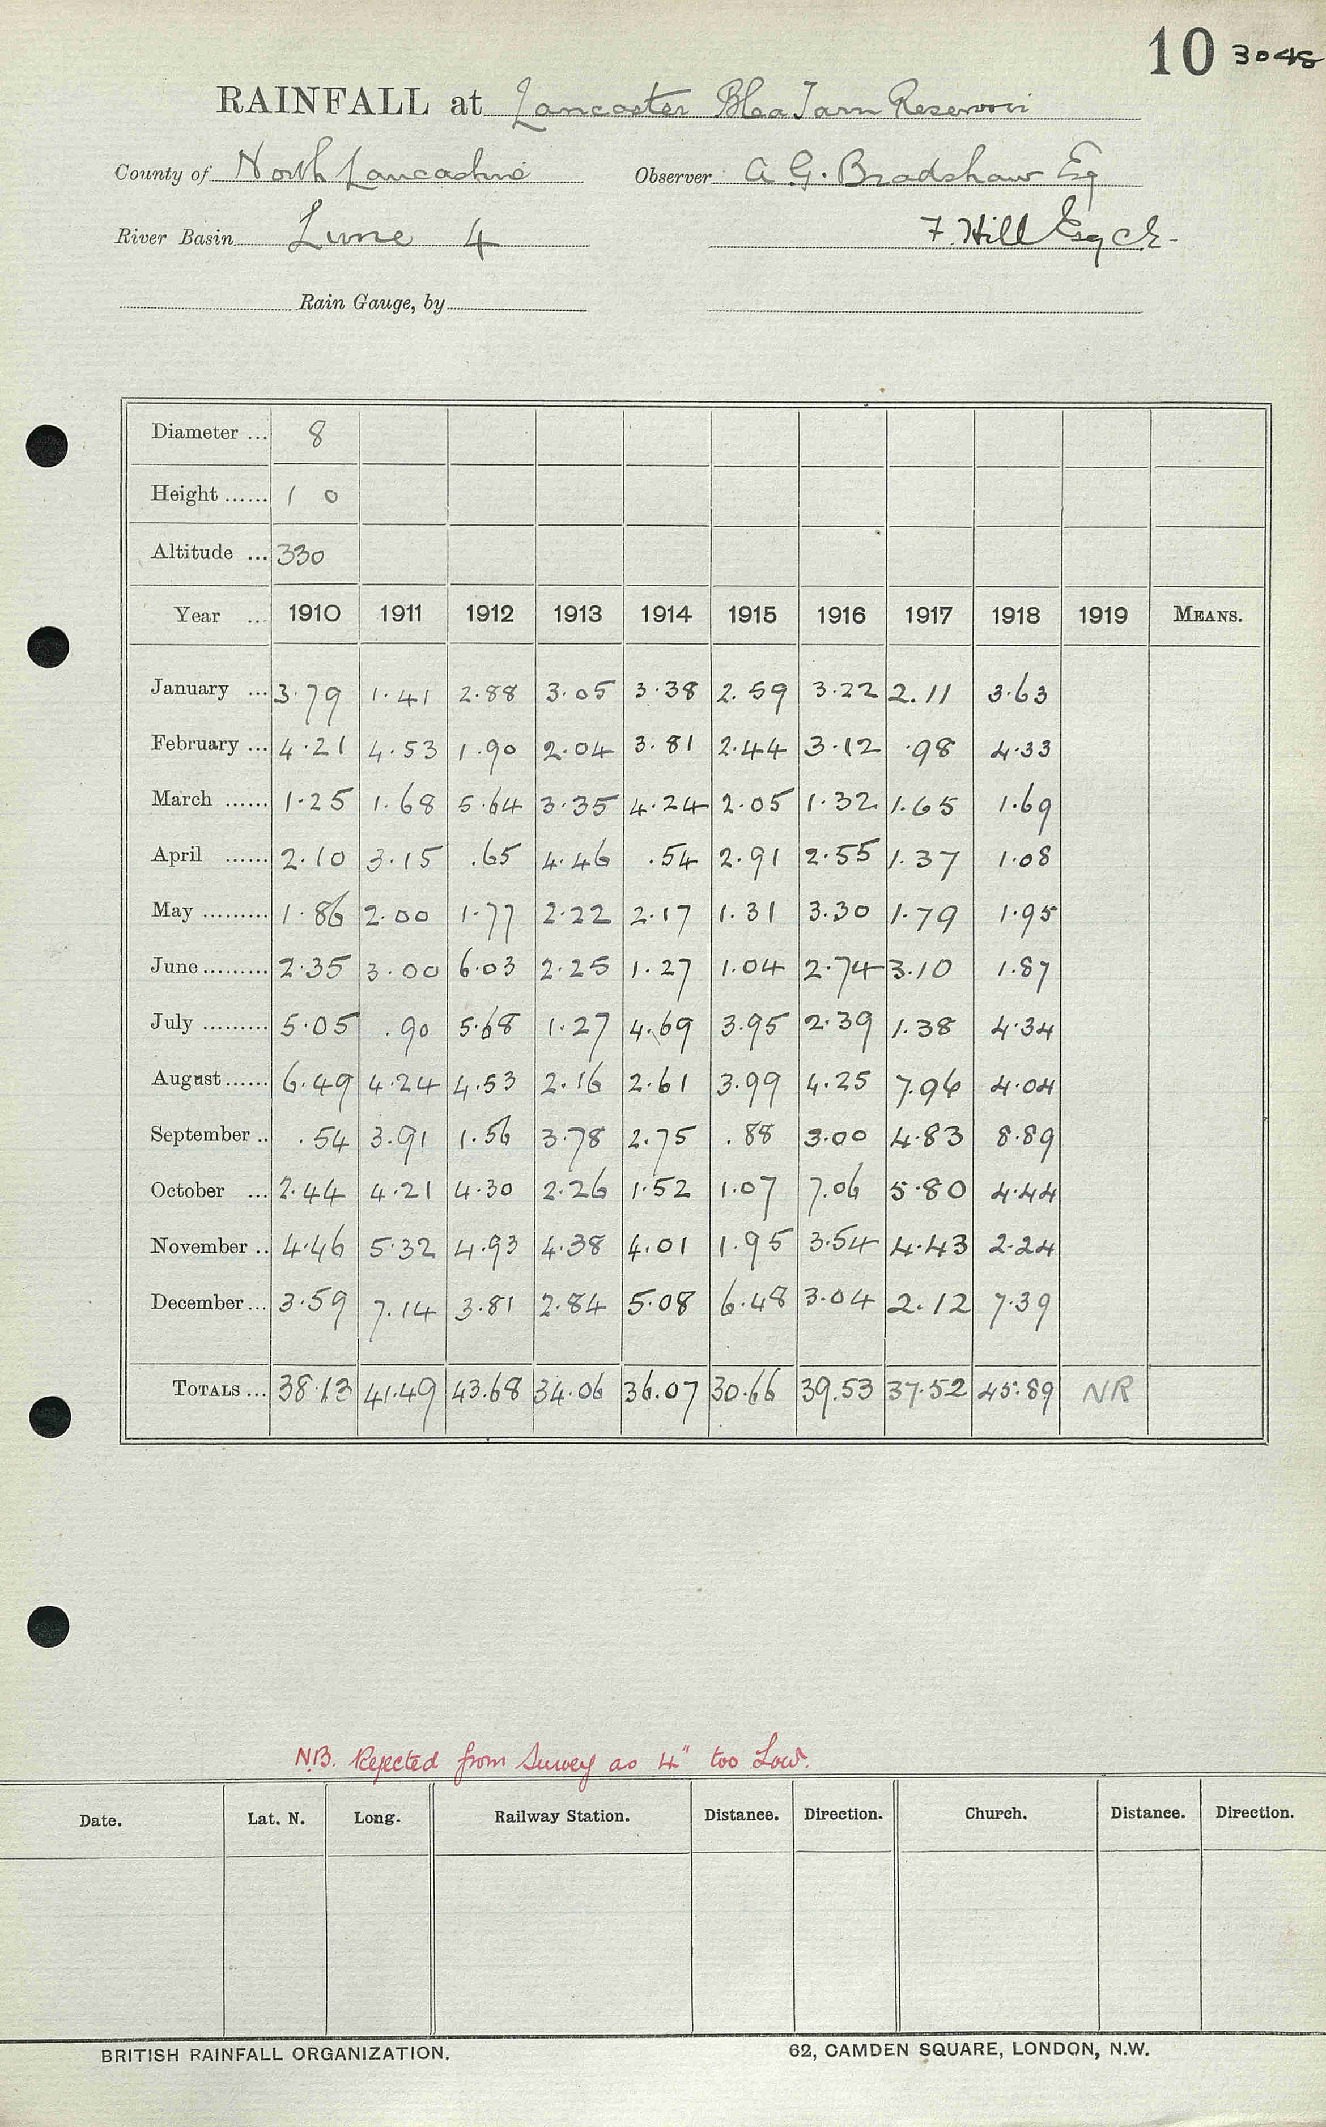 10 3048
RAINFALL at Lancaster Blea Tarn Reservoir
County of North Lancashire Observer A G. Bradshaw Esq
River Basin Lune 4 F. Hill Esq CE.
Rain Gauge, by
Diameter ... 8
Height ...... 1 0
Altitude ... 330
Year ... 1910 1911 1912 1913 1914 1915 1916 1917 1918 1919 MEANS.
January ... 3.79 1.41 2.88 3.05 3.38 2.59 3.22 2.11 3.63
February ... 4.21 4.53 1.90 2.04 3.81 2.44 3.12 .98 4.33
March ...... 1.25 1.68 5.64 3.35 4.24 2.05 1.32 1.65 1.69
April ...... 2.10 3.15 .65 4.46 .54 2.91 2.55 1.37 1.08
May ......... 1.86 2.00 1.77 2.22 2.17 1.31 3.30 1.79 1.95
June ......... 2.35 3.00 6.03 2.25 1.27 1.04 2.74 3.10 1.87
July ......... 5.05 .90 5.68 1.27 4.69 3.95 2.39 1.38 4.34
August ...... 6.49 4.24 4.53 2.16 2.61 3.99 4.25 7.96 4.04
September .. .54 3.91 1.56 3.78 2.75 .88 3.00 4.83 8.89
October ... 2.44 4.21 4.30 2.26 1.52 1.07 7.06 5.80 4.44
November .. 4.46 5.32 4.93 4.38 4.01 1.95 3.54 4.43 2.24
December ... 3.59 7.14 3.81 2.84 5.08 6.48 3.04 2.12 7.39
TOTALS ... 38.13 41.49 43.68 34.06 36.07 30.66 39.53 37.52 45.89 NR
N.B. Rejected from Survey as 4" too Low.
Date. Lat. N. Long. Railway Station. Distance. Direction. Church. Distance. Direction.
BRITISH RAINFALL ORGANIZATION. 62, CAMDEN SQUARE, LONDON, N.W.